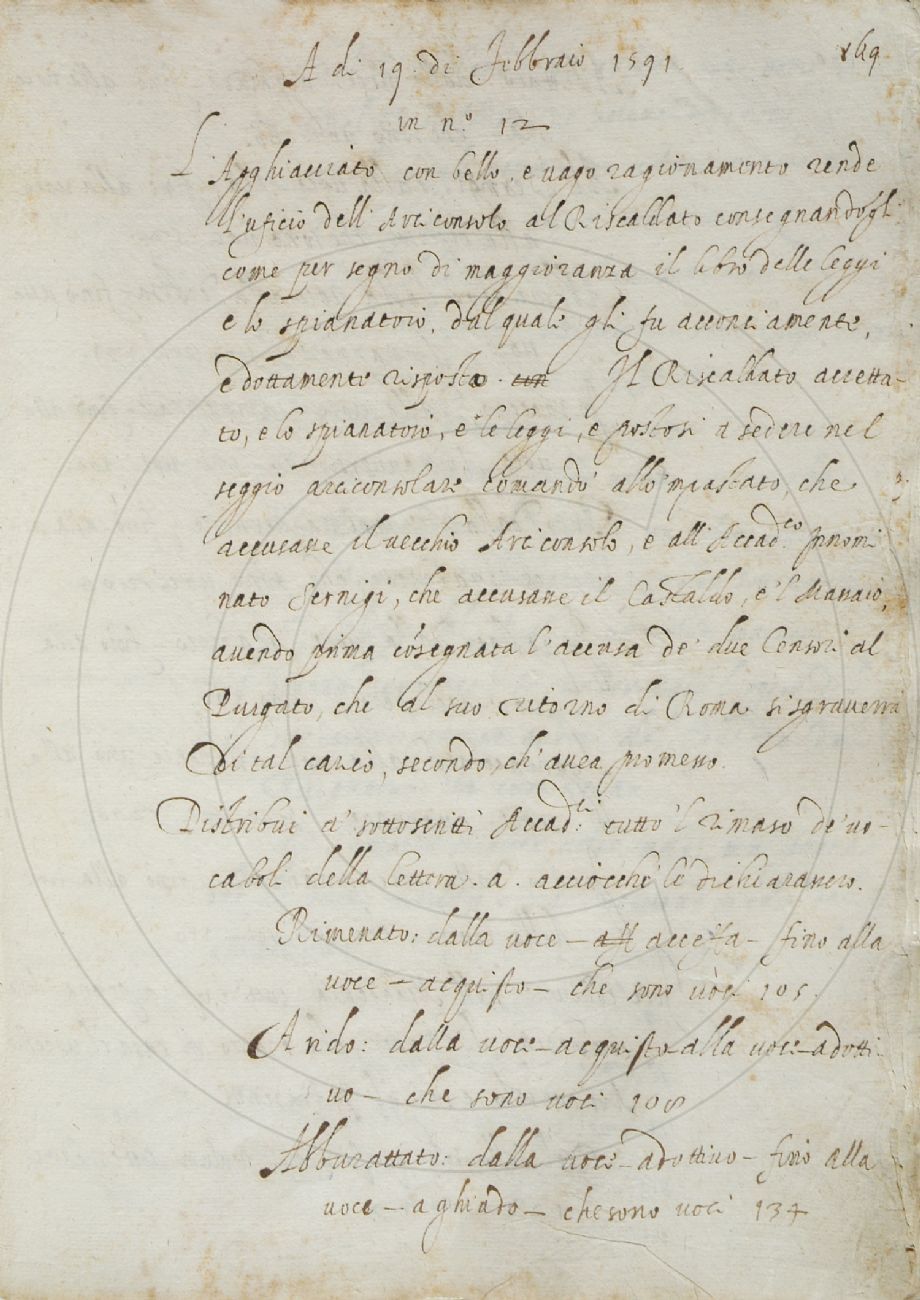 169
A di 19. di Febbraio 1591.
in n.º 12
L'Agghiacciato con bello, e vago ragionamento rende
l'uficio dell'Arciconsolo al Riscaldato consegnandogli
come per segno di maggioranza il libro delle leggi
e lo spianatoio, dal quale gli fu acconciamente,
e dottamente risposto. con Il Riscaldato accetta-
to, e lo spianatoio, e le leggi, e postosi a sedere nel
seggio arciconsolare comandò allo'mpastato, che
accusasse il vecchio Arciconsolo, e all'Accad.co Innomi
nato Sernigi, che accusasse il Castaldo, e'l Massaio,
avendo prima cōsegnata l'accusa de' due Censori al
Purgato, che al suo ritorno di Roma si sgraverrà
di tal carico, secondo, ch'avea promesso.
Distribuì a' sottoscritti Accad.ci tutto'l rimaso de' vo-
caboli della lettera .a. acciocchè le dichiarassero.
Rimenato: dalla voce – acceffa – fino alla
voce – acquisto – che sono voci 105.
Arido: dalla voce – acquisto – alla voce – adotti
vo – che sono voci 108
Abburattato: dalla voce – adottivo – fino alla
voce – aghiado – che sono voci 134